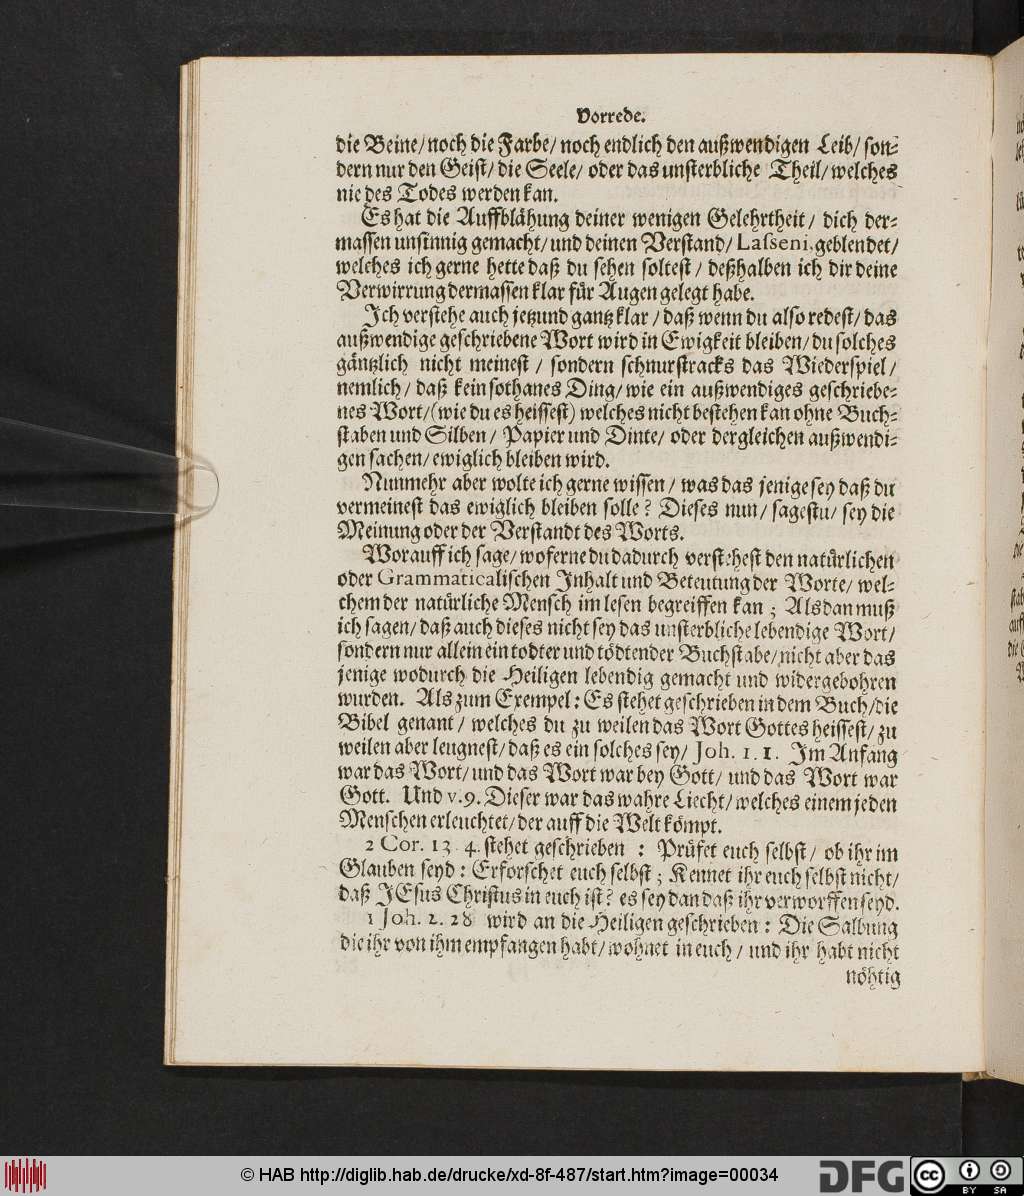 Vorrede.
die Beine/ noch die Farbe/ noch endlich den außwendigen Leib/ son-
dern nur den Geist/ die Seele/ oder das unsterbliche Theil/ welches
nie des Todes werden kan.
Es hat die Auffblähung deiner wenigen Gelehrtheit/ dich der-
massen unsinnig gemacht/ und deinen Verstand/ Lasseni, geblendet/
welches ich gerne hette daß du sehen soltest/ deßhalben ich dir deine
Verwirrung dermassen klar für Augen gelegt habe.
Ich verstehe auch jetzund gantz klar/ daß wenn du also redest/ das
außwendige geschriebene Wort wird in Ewigkeit bleiben/ du solches
gäntzlich nicht meinest/ sondern schnurstracks das Wiederspiel/
nemlich/ daß kein sothanes Ding/ wie ein außwendiges geschriebe-
nes Wort/ (wie du es heissest) welches nicht bestehen kan ohne Buch-
staben und Silben/ Papier und Dinte/ oder dergleichen außwendi-
gen sachen/ ewiglich bleiben wird.
Nunmehr aber wolte ich gerne wissen/ was das jenige sey daß du
vermeinest das ewiglich bleiben solle? Dieses nun/ sagestu/ sey die
Meinung oder der Verstandt des Worts.
Worauff ich sage/ woferne du dadurch verstehest den natürlichen
oder Grammaticalischen Inhalt und Beteutung der Worte/ wel-
chem der natürliche Mensch im lesen begreiffen kan; Alsdan muß
ich sagen/ daß auch dieses nicht sey das unsterbliche lebendige Wort/
sondern nur allein ein todter und tödtender Buchstabe/ nicht aber das
jenige wodurch die Heiligen lebendig gemacht und widergebohren
wurden. Als zum Exempel: Es stehet geschrieben in dem Buch/ die
Bibel genant/ welches du zu weilen das Wort Gottes heissest/ zu
weilen aber leugnest/ daß es ein solches sey/ Joh. 1. 1. Im Anfang
war das Wort/ und das Wort war bey Gott/ und das Wort war
Gott. Und v. 9. Dieser war das wahre Liecht/ welches einem jeden
Menschen erleuchtet/ der auff die Welt kömpt.
2 Cor. 13. 4. stehet geschrieben: Prüfet euch selbst/ ob ihr im
Glauben seyd: Erforschet euch selbst; Kennet ihr euch selbst nicht/
daß JEsus Christus in euch ist? es sey dan daß ihr verworffen seyd.
1 Joh. 2. 28 wird an die Heiligen geschrieben: Die Salbung
die ihr von ihm empfangen habt/ wohnet in euch/ und ihr habt nicht
nöhtig
© HAB http://diglib.hab.de/drucke/xd-8f-487/start.htm?image=00034
DFG
cc BY SA